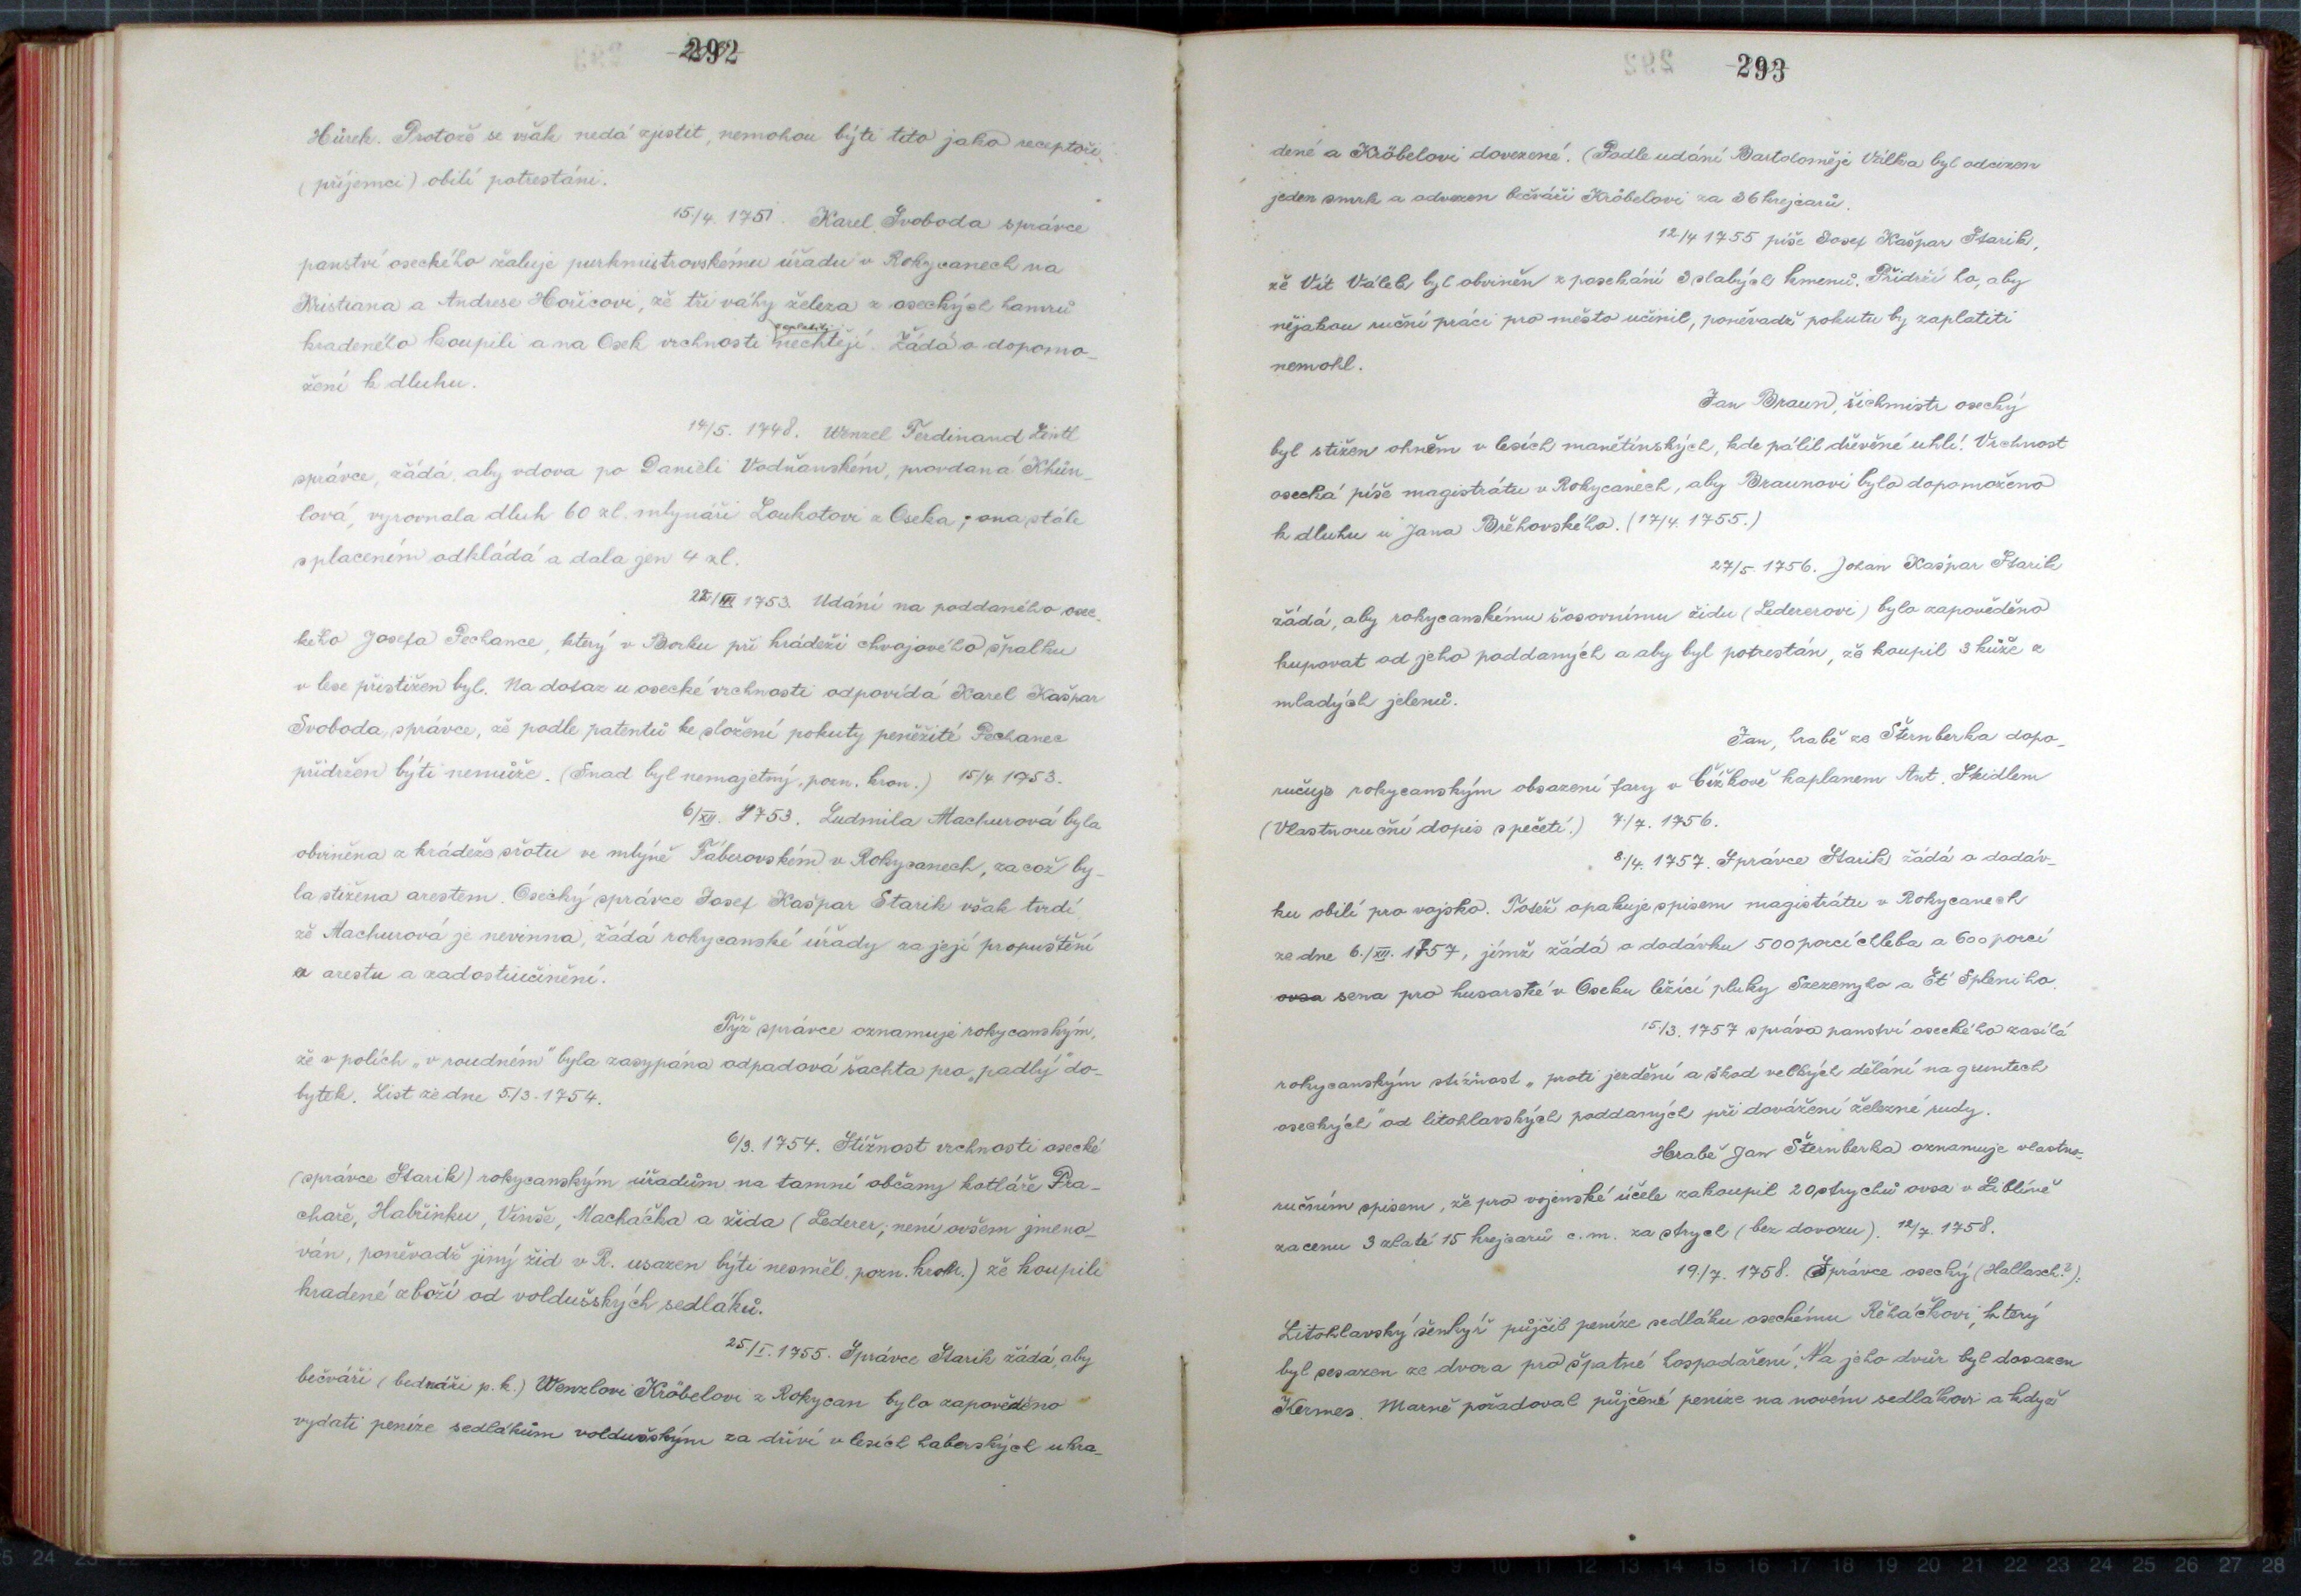 292
Hůrek. Protože se však nedá zjistit, nemohou býti tito jako receptoři
(příjemci) obilí potrestáni.
15/4. 1751. Karel Svoboda správce
panství oseckého žaluje purkmistrovskému úřadu v Rokycanech na
Kristiana a Andrese Hořicovi, že tři váhy železa z oseckých hamrů
zaplatiti
kradeného koupili a na Osek vrchnosti nechtějí. Žádá o dopomo-
žení k dluhu.
14/5. 1748. Wenzel Ferdinand Zeintl
správce, žádá, aby vdova po Danieli Vodňanském, provdaná Khün-
lová, vyrovnala dluh 60 zl. mlynáři Loukotovi z Oseka; ona stále
splacením odkládá a dala jen 4 zl.
22/III 1753. Udání na poddaného osec-
kého Josefa Pechance, který v Borku při krádeži chvojového špalku
v lese přistižen byl. Na dotaz u osecké vrchnosti odpovídá Karel Kašpar
Svoboda, správce, že podle patentů ke složení pokuty peněžité Pechanec
přidržen býti nemůže. (Snad byl nemajetný, pozn. kron.) 15/4 1753.
6/XII. 1753. Ludmila Machurová byla
obviněna z krádeže šrotu ve mlýně Táberovském v Rokycanech, za což by-
la stižena arestem. Osecký správce Josef Kašpar Starik však tvrdí,
že Machurová je nevinna, žádá rokycanské úřady za její propuštění
z arestu a zadostiučinění.
Týž správce oznamuje rokycanským,
že v polích „v roudném" byla zasypána odpadová šachta pro „padlý" do-
bytek. List ze dne 5./3. 1754.
6/3. 1754. Stížnost vrchnosti osecké
(správce Starik) rokycanským úřadům na tamní občany kotláře Pra-
chaře, Habřinku, Vinše, Macháčka a žida (Lederer, není ovšem jmeno-
ván, poněvadž jiný žid v R. usazen býti nesměl, pozn. kron.) že koupili
kradené zboží od voldušských sedláků.
25/I. 1755. Správce Starik žádá, aby
bečváři (bednáři p. k.) Wenzlovi Kröbelovi z Rokycan bylo zapověděno
vydati peníze sedlákům voldušským za dříví v lesích haberských ukra-
293
dené a Kröbelovi dovezené. (Podle udání Bartoloměje Válka byl odcizen
jeden smrk a odvezen bečváři Kröbelovi za 36 krejcarů.
12/4 1755 píše Josef Kašpar Starik,
že Vít Válek byl obviněn z posekání 3 slabých kmenů. Přidrží ho, aby
nějakou ruční práci pro město učinil, poněvadž pokutu by zaplatiti
nemohl.
Jan Braun, šichmistr osecký
byl stižen ohněm v lesích manětínských, kde pálil dřevěné uhlí! Vrchnost
osecká píše magistrátu v Rokycanech, aby Braunovi bylo dopomoženo
k dluhu u Jana Břěhovského. (17/4. 1755.)
27/5. 1756. Johan Kašpar Starik
žádá, aby rokycanskému šosovnímu židu (Ledererovi) bylo zapověděno
kupovat od jeho poddaných a aby byl potrestán, že koupil 3 kůže z
mladých jelenů.
Jan, hrabě ze Šternberka dopo-
ručuje rokycanským obsazení fary v Čížkově kaplanem Ant. Skidlem
(Vlastnoruční dopis s pečetí.) 7/7. 1756.
8./4. 1757. Správce Starik žádá o dodáv-
ku obilí pro vojsko. Totéž opakuje spisem magistrátu v Rokycanech
ze dne 6./XII. 1757, jímž žádá o dodávku 500 porcí chleba a 600 porcí
ovsa sena pro husarské v Oseku ležící pluky Szezenyho a Et Spleniho.
15/3. 1757 správa panství oseckého zasílá
rokycanským stížnost „proti jezdění a škod velkých dělání na gruntech
oseckých" od litohlavských poddaných při dovážení železné rudy.
Hrabě Jan Šternberka oznamuje vlastno-
ručním spisem, že pro vojenské účele zakoupil 20 strychů ovsa v Liblíně
za cenu 3 zlaté 15 krejcarů c. m. za strych (bez dovozu). 12/7. 1758.
19./7. 1758. Správce osecký (Hallasch?):
Litohlavský šenkýř půjčil peníze sedláku oseckému Řeháčkovi, který
byl sesazen ze dvora pro špatné hospodaření. Na jeho dvůr byl dosazen
Kermes. Marně požadoval půjčené peníze na novém sedlákovi a když